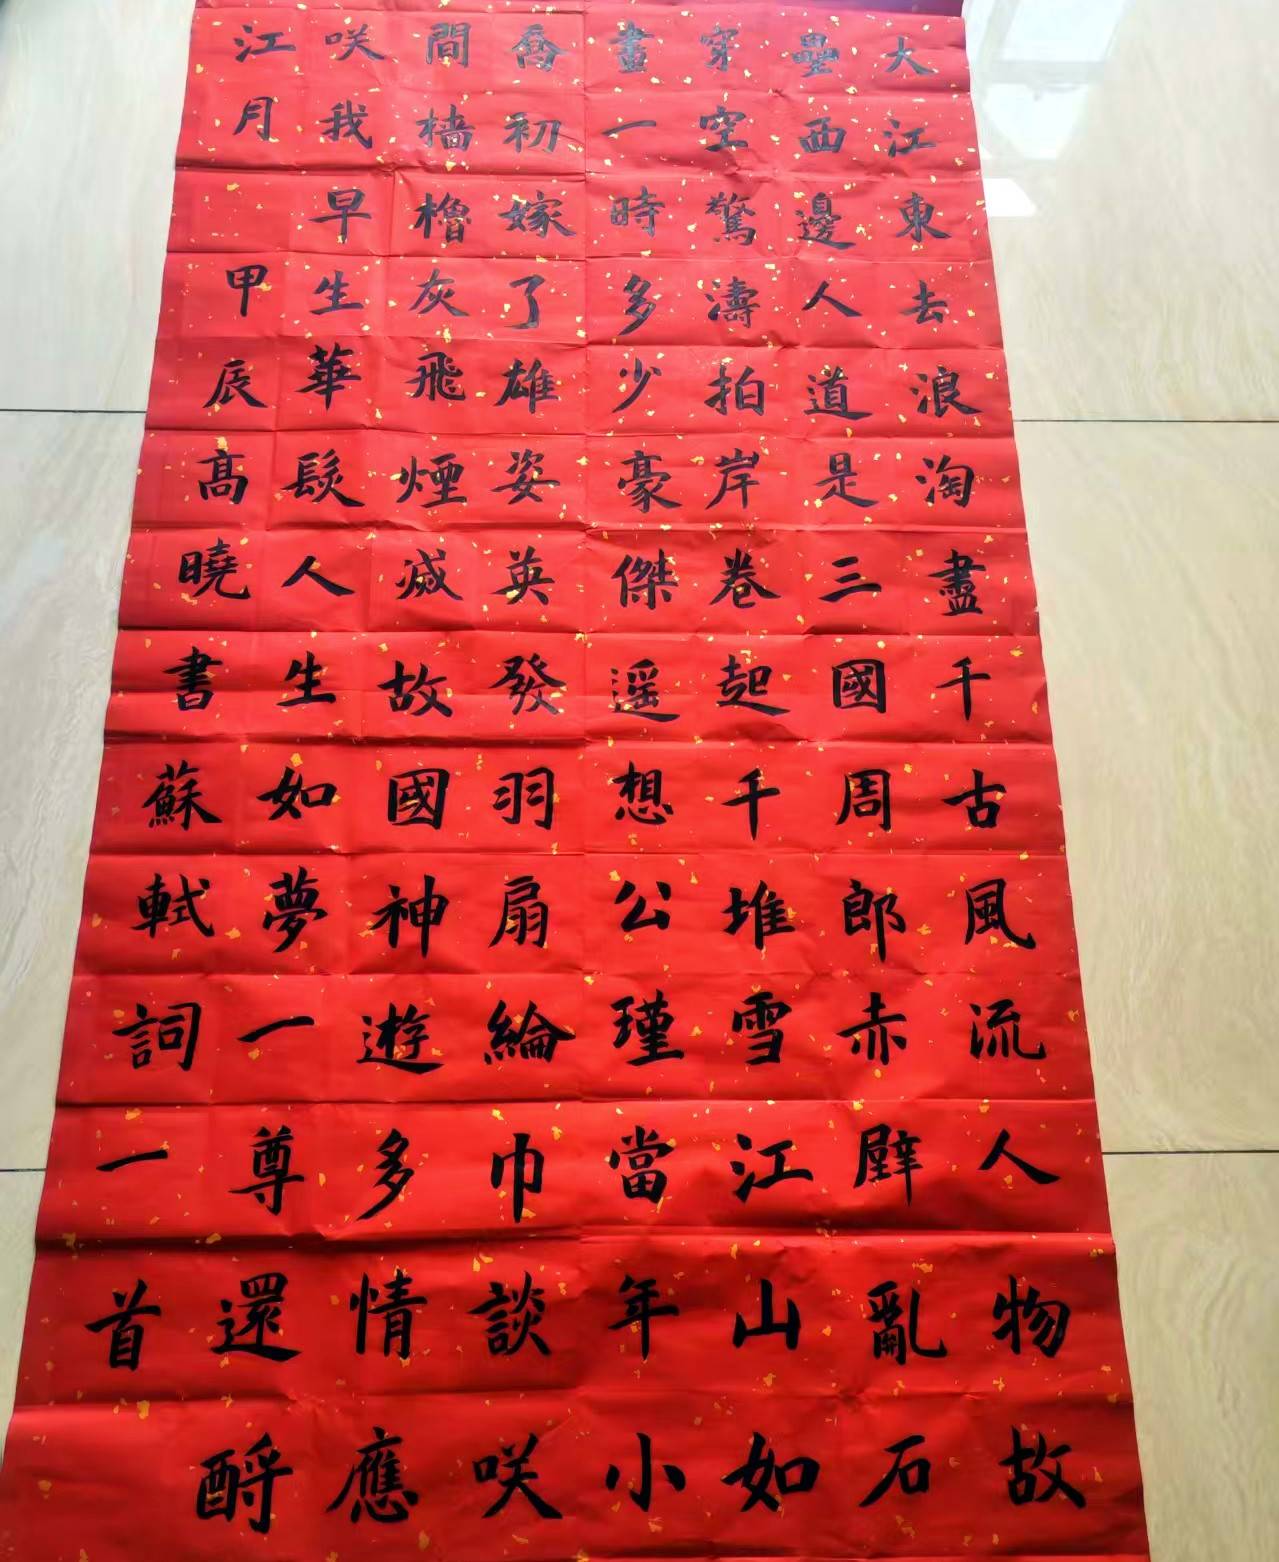 大江東去浪淘盡千古風流人物故
壘西邊人道是三國周郎赤壁亂石如
穿空驚濤拍岸卷起千堆雪江山如
畫一時多少豪傑遥想公瑾當年小
喬初嫁了雄姿英發羽扇綸巾談咲
間檣櫓灰飛煙滅故國神遊多情應
咲我早生華髮人生如夢一尊還酹
江月 甲辰高曉書蘇軾詞一首